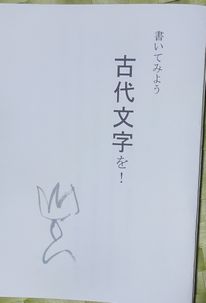 書いてみよう
古代文字を！